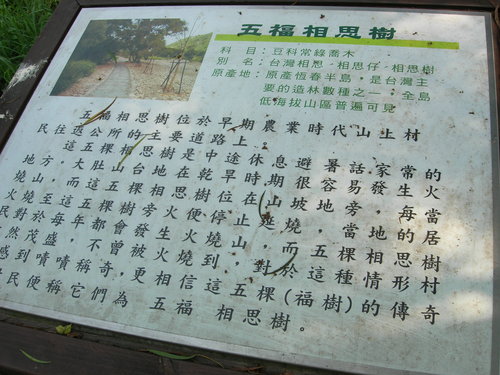 五福相思樹
科　目：豆科常綠喬木
別　名：台灣相思．相思仔．相思樹
原產地：原產恆春半島，是台灣主
要的造林數種之一；全島
低海拔山區普遍可見
五福相思樹位於早期農業時代山上村
民往返公所的主要道路上。
這五棵相思樹是中途休息避暑話家常的
地方，大肚山台地在乾旱時期很容易發生火
燒山，而這五棵樹 坡地旁，每當
火燒至這五棵樹旁火便停止延燒，當地居
民對於每年都會發生火燒山，而五棵相思樹
然茂盛，不曾被火燒到，對於這種情形村
感到嘖嘖稱奇，更相信這五棵(福樹)的傳奇
民便稱它們為 五福 相思樹。